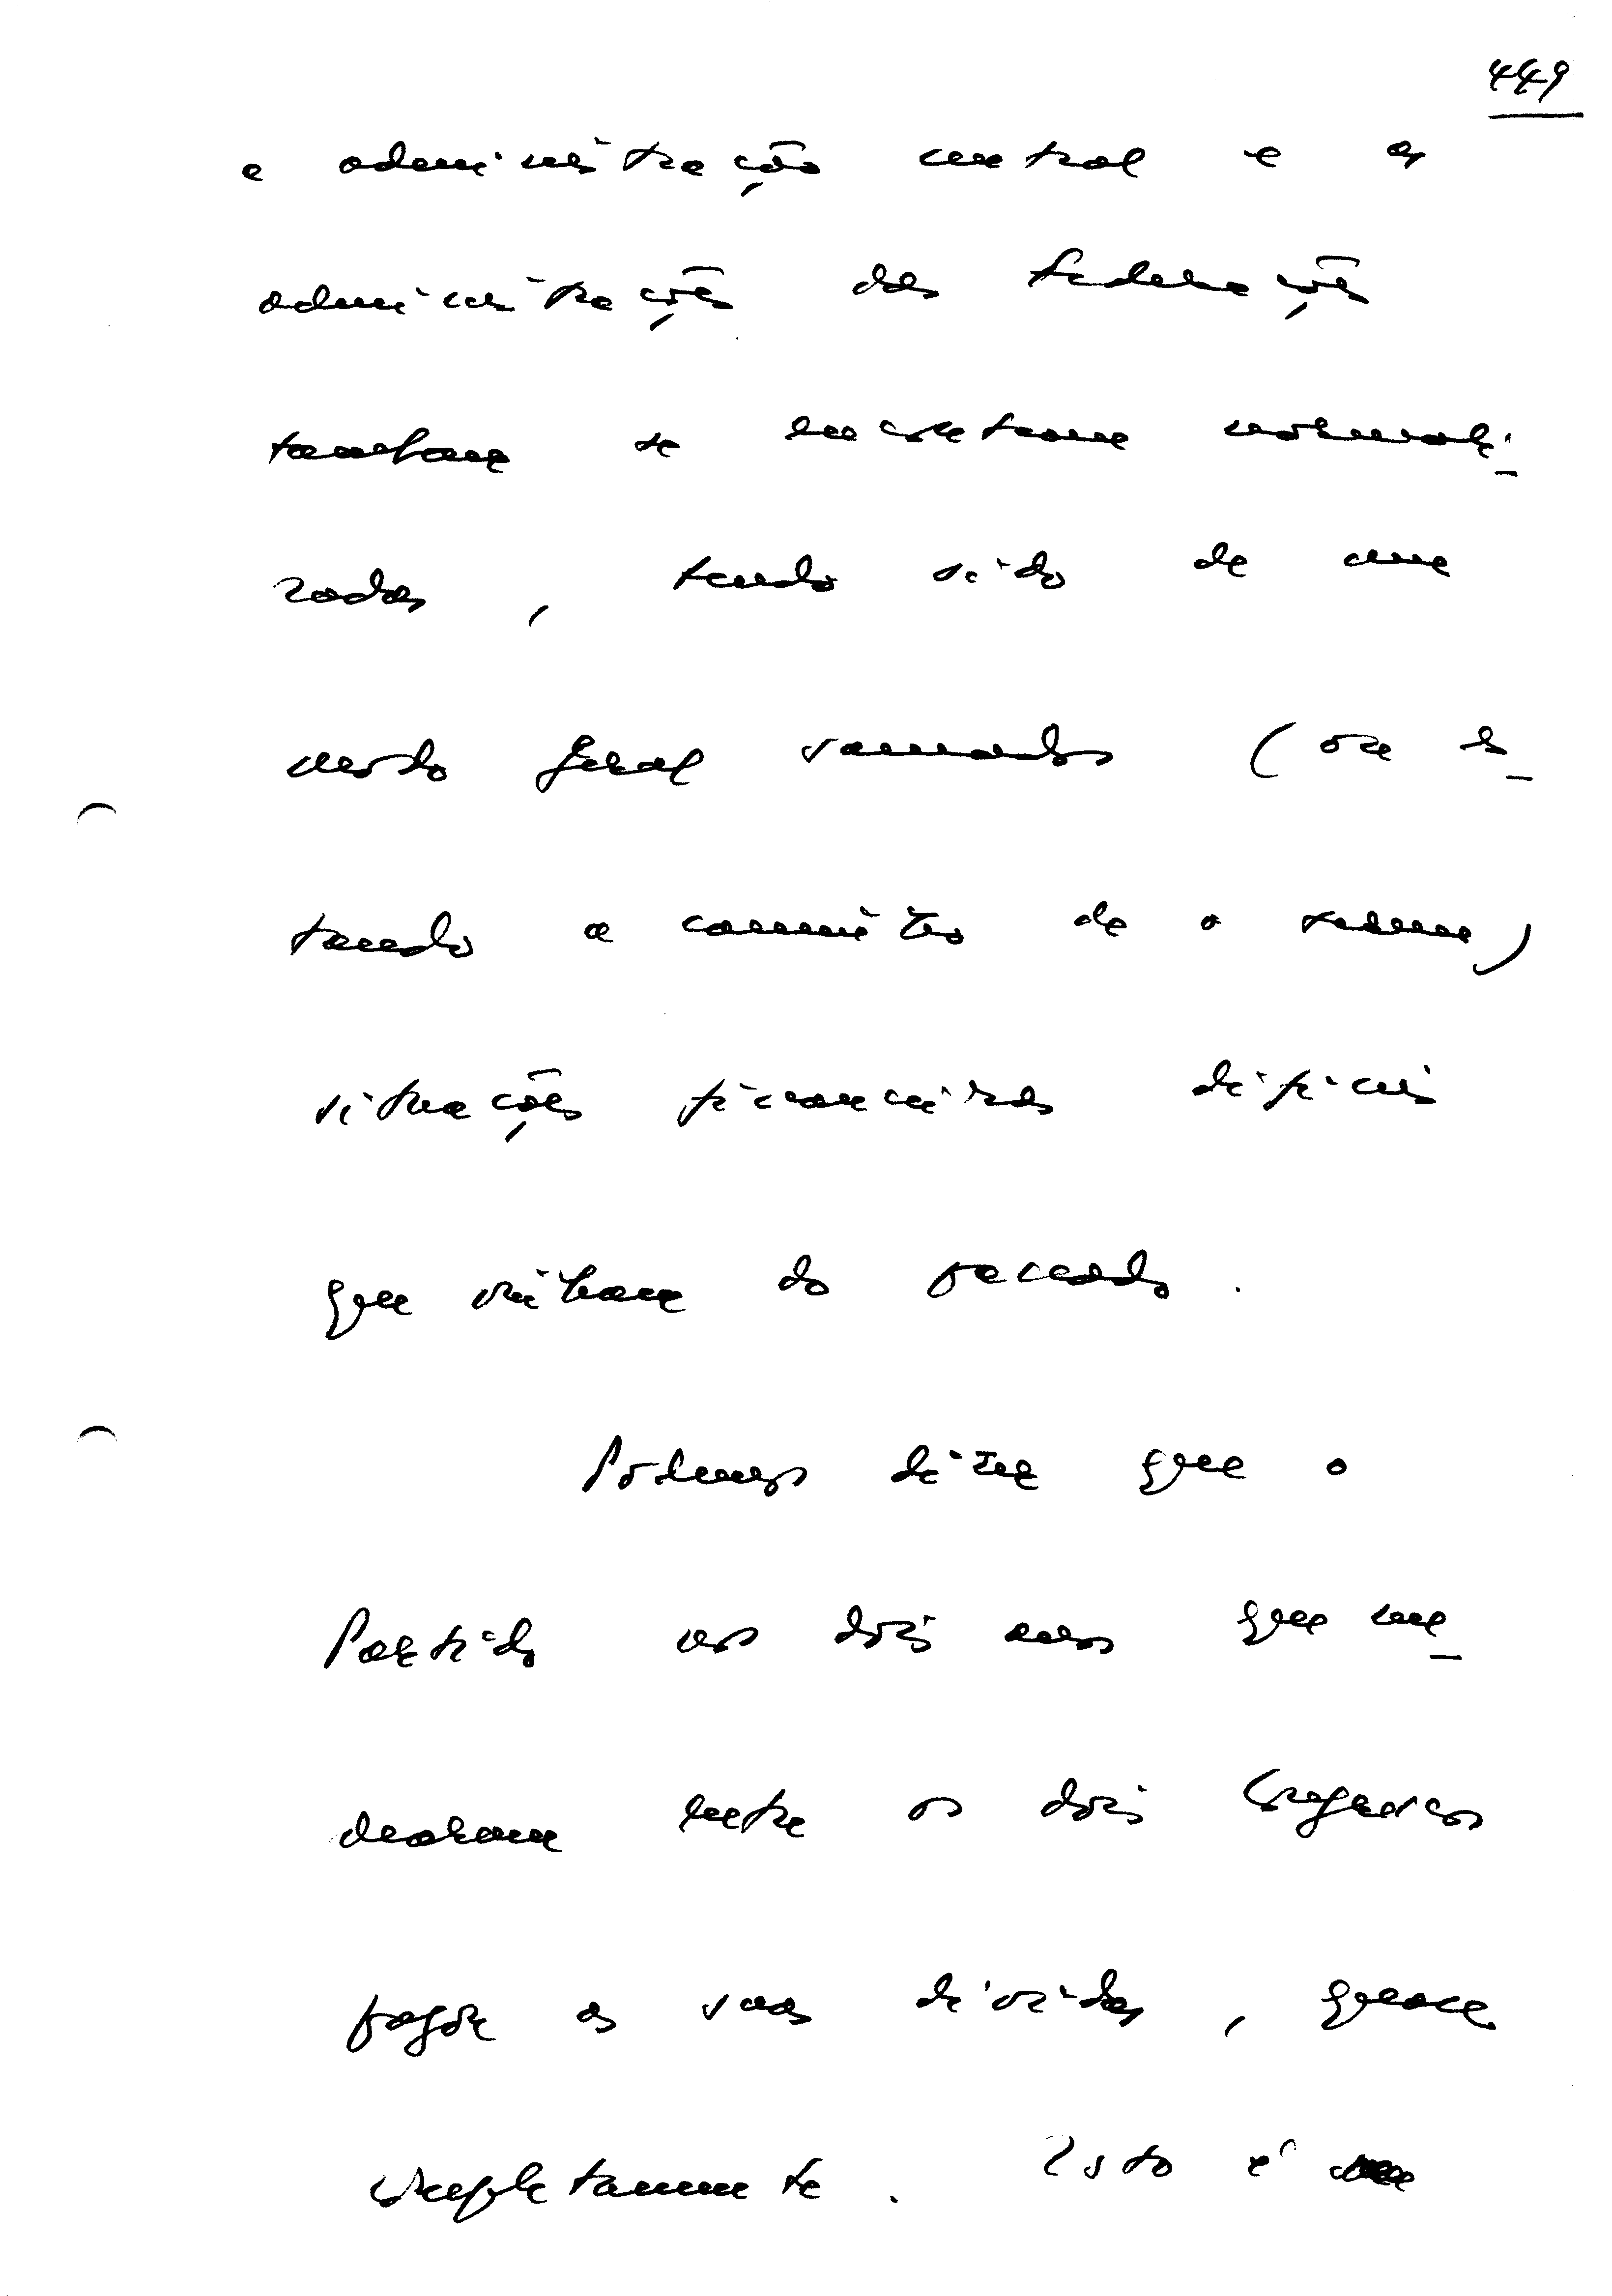 449
a administração central e as
administrações das federações
também se encontram normali-
zadas, tendo sido de um
modo geral sanadas (ou es-
tando a caminho de o serem)
situações financeiras difíceis
que vinham do passado.
Podemos dizer que o
Partido nos dois anos que me-
dearam entre os dois Congressos
pagou as suas dívidas, quase
completamente. Isto é